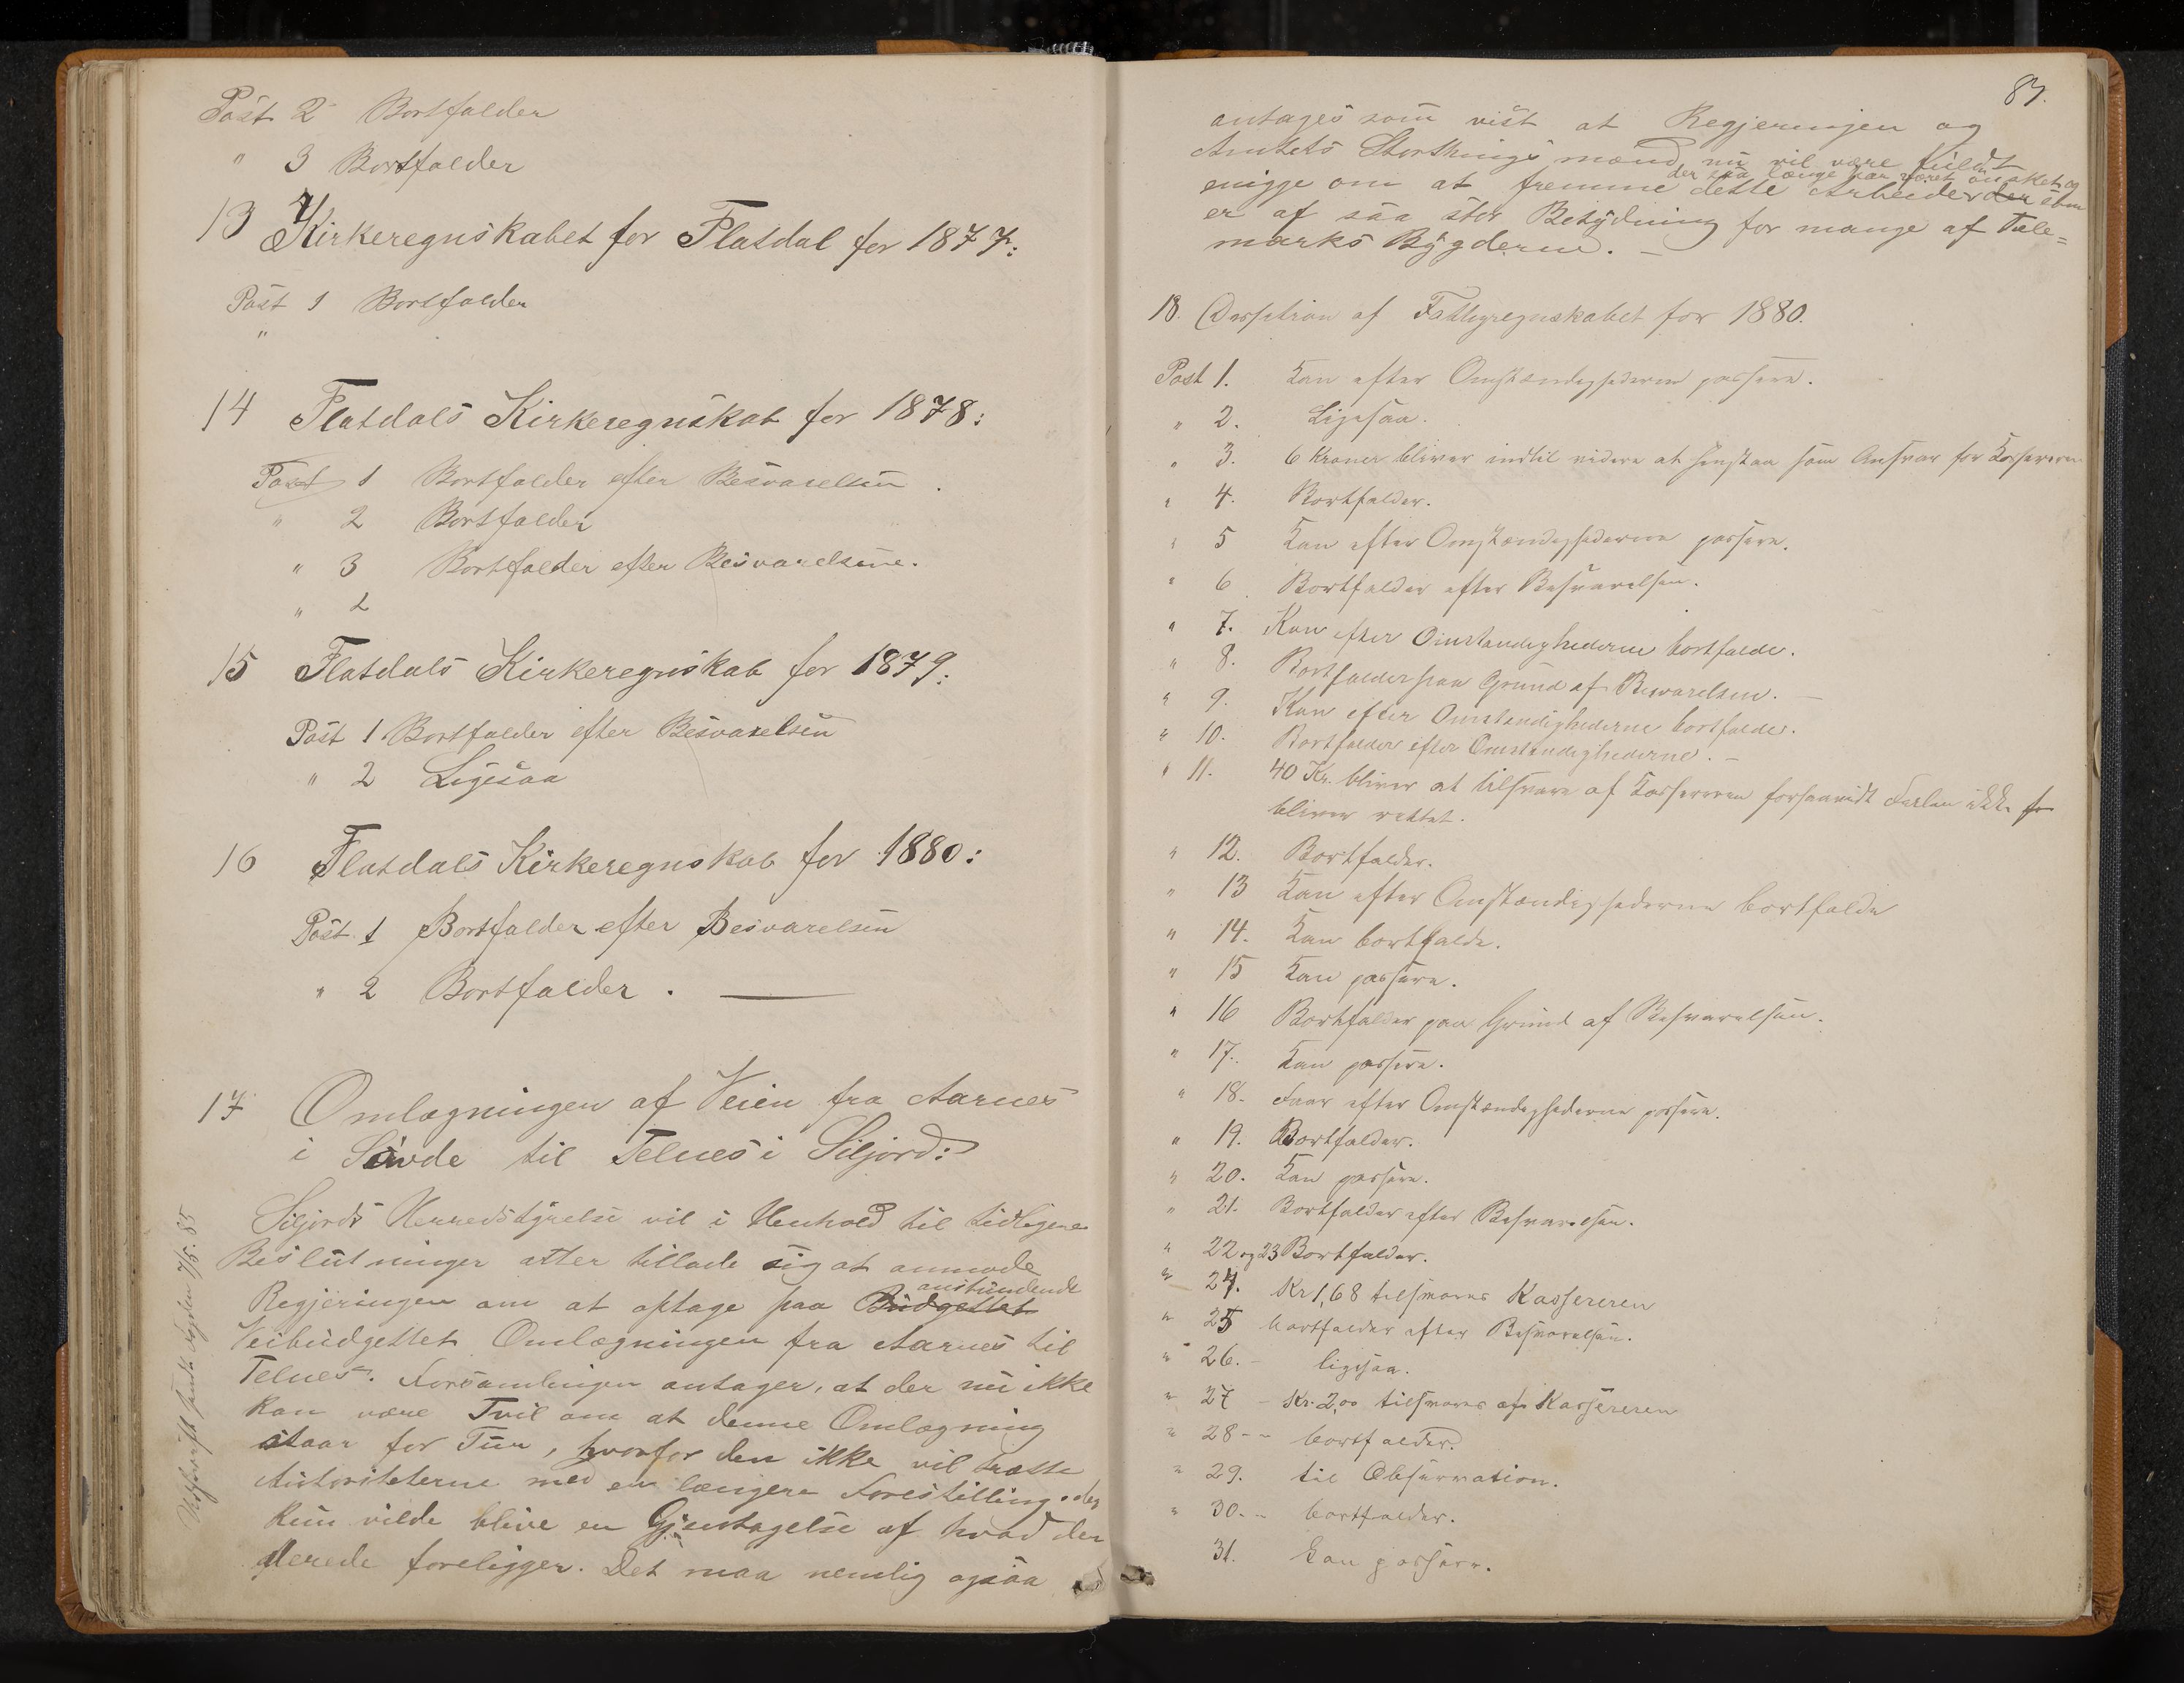 Post 2 Bortfalder
" 3 Bortfalder
13 Kirkeregnskabet for Flatdal for 1877:
Post 1 Bortfalder
"
14 Flatdals Kirkeregnskab for 1878:
Post 1 Bortfalder efter Besvarelsen.
" 2 Bortfalder
" 3 Bortfalder efter Besvarelsene.
" 2
15 Flatdals Kirkeregnskab for 1879:
Post 1 Bortfalder efter Besvarelsen
" 2 Ligesaa
16 Flatdals Kirkeregnskab for 1880:
Post 1 Bortfalder efter Besvarelsen
" 2 Bortfalder.
17 Omlægningen af Veien fra Aarnes
i Saude til Telnes i Siljord:
Siljords Herredstyrelse vil i Henhold til tidligere
Beslutninger atter tillade sig at anmode
Regjeringen om at optage paa Budgettet anstundende
Veibudgettet Omlægningen fra Aarnes til
Telnes. Forsamlingen antager, at der nu ikke
kan være Tvil om at denne Omlægning
staar for Tur, hvorfor den ikke vil trætte
Autoriteterne med en længere Forestilling, der
kun vilde blive en Gjentagelse af hvad der
allerede foreligger. Det maa nemlig ogsaa
Udskrift 7/5. 85
87.
antages som vist at Regjeringen og
Amtets Storthingsmænd, nu vil være fuldt
enigge om at fremme dette Arbeide der der saa længe har været ønsket og som
er af saa stor Betydning for mange af Tele=
marks Bygderne. –
18. Decision af Fattigregnskabet for 1880.
Post 1. Kan efter Omstændighederne passere.
" 2. Ligesaa.
" 3. 6 Kroner bliver indtil videre at henstaa som Ansvar for Kassereren
" 4. Bortfalder.
" 5 Kan efter Omstændighederne passere.
" 6. Bortfalder efter Besvarelsen.
" 7. Kan efter Omstændighederne bortfalde.
" 8. Bortfalder paa Grund af Besvarelsen. –
" 9. Kan efter Omstændighederne bortfalde.
" 10. Bortfalder efter Omstændighederne. –
" 11. 40 Kr. bliver at tilsvare af Kassereren forsaavidt Feilen ikke
bliver rettet.
" 12. Bortfalder.
" 13 Kan efter Omstændighederne bortfalde
" 14. Kan bortfalde.
" 15 Kan passere.
" 16 Bortfalder paa Grund af Besvarelsen.
" 17. Kan passere.
" 18. Faar efter Omstændighederne passere.
" 19. Bortfalder.
" 20. Kan passere.
" 21. Bortfalder efter Besvarelsen.
" 22 og 23 Bortfalder.
" 24. Kr 1,68 tilsvares Kassereren
" 25 bortfalder efter Besvarelsen.
" 26. – ligesaa.
" 27 – Kr. 2,00 tilsvares af Kassereren
" 28 -- bortfalder.
" 29. til Observation.
" 30. -- bortfalder.
31. Kan passere.